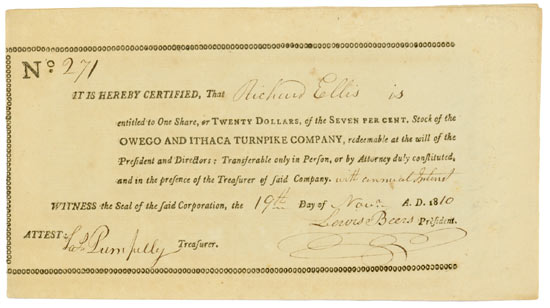 No. 271
IT IS HEREBY CERTIFIED, That Richard Ellis is
entitled to One Share, or TWENTY DOLLARS, of the SEVEN PER CENT. Stock of the
OWEGO AND ITHACA TURNPIKE COMPANY, redeemable at the will of the
President and Directors: Transferable only in Person, or by Attorney duly constituted,
and in the presence of the Treasurer of said Company. with annual Interest
WITNESS the Seal of the said Corporation, the 19th Day of Novr. A. D. 1810
Lewis Beers President.
ATTEST: Jas Pumpelly Treasurer.